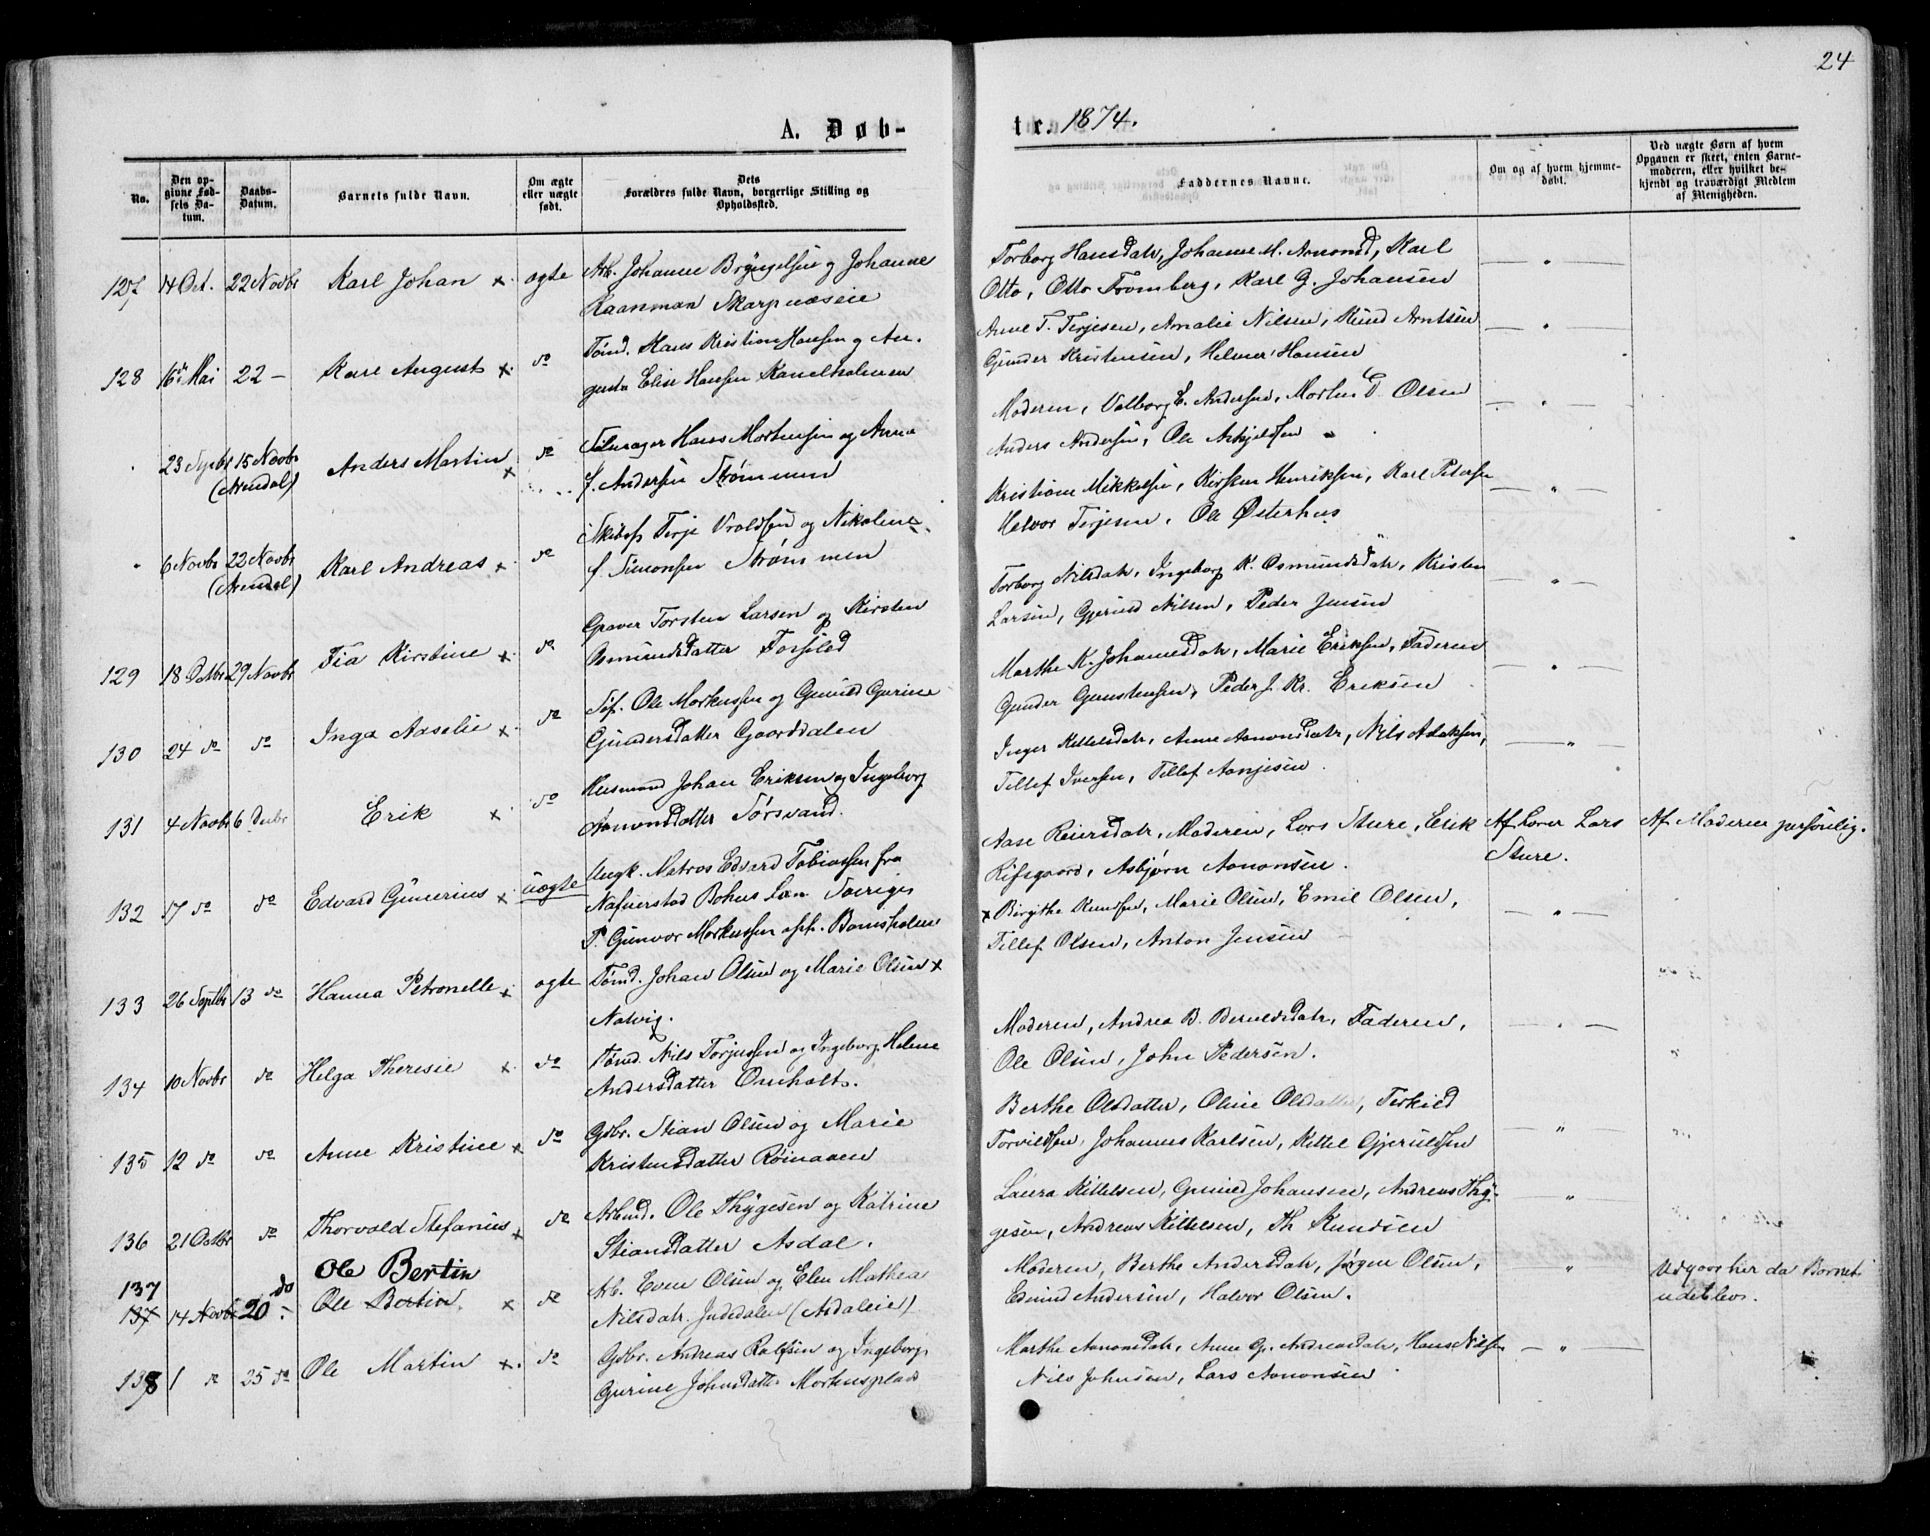 24
A. Døb-
te. 1874.
No.
Den opgivne Fødsels Datum.
Daabs-Datum.
Barnets fulde Navn.
Om ægte eller uægte født.
Dets Forældres fulde Navn, borgerlige Stilling og Opholdssted.
Faddernes Navne.
Om og af hvem hjemmedøbt.
Ved uægte Børn af hvem Opgaven er skeet, enten Barnemoderen, eller hvilket bekjendt og troværdigt Medlem af Menigheden.
127 14 Oct. 22 Novbr Karl Johan x. ægte Arb. Johanne Bryngelsen og Johanne
Kaanman Skarpnæseie
Torborg Hansdatr, Johanne M. Amond, Karl
Otto, Otto Fromberg, Karl G. Johansen
128 16de Mai 22 — Karl August x. do Tømd. Hans Kristian Hansen og Au-
gusta Elise Hansen Kanelholmen
Anne T. Terjesen, Amalie Nilsen, Knud Arntsen
Gunder Kristensen, Helmer Hansen
23 Septbr 15 Novbr (Arendal) Anders Martin x do Hans Mortensen og Anna
f. Andersen Strømmen
Moderen, Valborg E. Andersen, Morten T. Olsen
Anders Andersen, Ole Askjeldsen
6 Novbr 22 Novbr (Arendal) Karl Andreas x. do Skibsf. Terje Vraldsen og Nikoline
f. Simonsen Strømmen
Kristiane Mikkelsen, Kirsten Henriksen, Karl Petersen
Halvor Terjesen, Ole Østerhus
129 18 Octbr 29 Novbr Tia Kirstine x. do Graver Torsten Larsen og Kirsten
Osmundsdatter Forsiled
Torborg Nilsdatr, Ingeborg K. Osmundsdatr, Kristen
Larsen, Gjeruld Nilsen, Peder Jensen
130 24 do do Inga Aaselie x. do Søf. Ole Markussen og Gunild Gurine
Gundersdatter Gaarddalen
Marthe K. Johannesdatr, Marie Eriksen, Faderen
Gunder Gunstensen, Peder J. Kr. Eriksen
131 4 Novbr 6 Decbr Erik x. do Husmand Johan Eriksen og Ingeborg
Aamondsdatter Tørsvand.
Inger Kittelsdatr, Anne Aamondsdatr, Nils Adaksen,
Tellef Iversen, Tellef Aanjesen.
132 17 do do Edvard Gunerius x. uægte Ungk. Matros Edvard Tobiassen fra
Nafverstad Bohus Län Sverige
P. Gunvor Markussen opf. Bomsholmen
Aase Reiersdatr, Moderen, Lars Sture, Erik
Rifsgaard, Asbjørn Aanonsen.
Af Lærer Lars
Sture.
Af Moderen personlig.
133 26 Septbr 13 do Hanna Petronelle x. ægte Tømd. Johan Olsen og Marie Olsen x
Natvig.
x Birgithe Knudsen, Marie Olsen, Emil Olsen,
Tellef Olsen, Anton Jensen
134 10 Novbr do Helga Theresie x. do Tømd. Nils Torjussen og Ingeborg Helene
Andersdatter Omholt.
Moderen, Andrea B. Beruldsdatr, Faderen,
Ole Olsen, John Pedersen.
135 12 do do Anne Kristine x do Gdbr. Stian Olsen og Marie
Kristensdatter Røinaaen
Berthe Olsdatter, Oline Olsdatter, Terkild
Torvildsen, Johannes Karlsen, Kittel Gjeruldsen
136 21 Octbr do Thorvald Stefanius x do Arbmd. Ole Thygesen og Katrine
Stiansdatter Asdal.
Laura Kittelsen, Gunild Johansen, Andreas Thy-
gesen, Andreas Kittelsen, Th Knudsen
137 Ole Bertin
137 14 Novbr 20 do Ole Bertin. x do Arb. Even Olsen og Elen Mathea
Nilsdatr. Judedalen (Asdaleie)
Moderen, Berthe Andersdatr, Jørgen Olsen,
Edvind Andersen, Halvor Olsen.
Udgaar her da Barnet
udeblev.
138 1 do 25 do Ole Martin x. do Gdbr. Andreas Rolfsen og Ingeborg
Gurine Johnsdatter Mortensplads
Marthe Aanonsdatr, Anne G. Andreasdatr, Hans Nilsen
Nils Johnsen, Lars Aanonsen